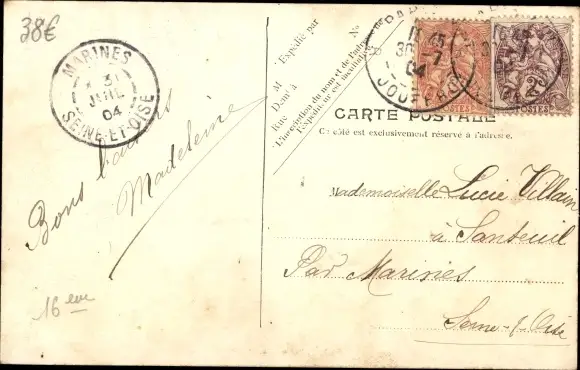 38€
MARINES
31
JUIL
04
SEINE-ET-OISE
Bons baisers
Madeleine
16 eme
Nº
Expédié par
M
Demt à
Rue
L'inscription du nom et de l'adresse
de l'expéditeur est facultative
PARIS
11 45
30 -7
04
JOUFFROY
POSTES
POSTES
CARTE POSTALE
Ce côté est exclusivement réservé à l'adresse.
Mademoiselle Lucie Villain
à Santeuil
Par Marines
Seine-&-Oise